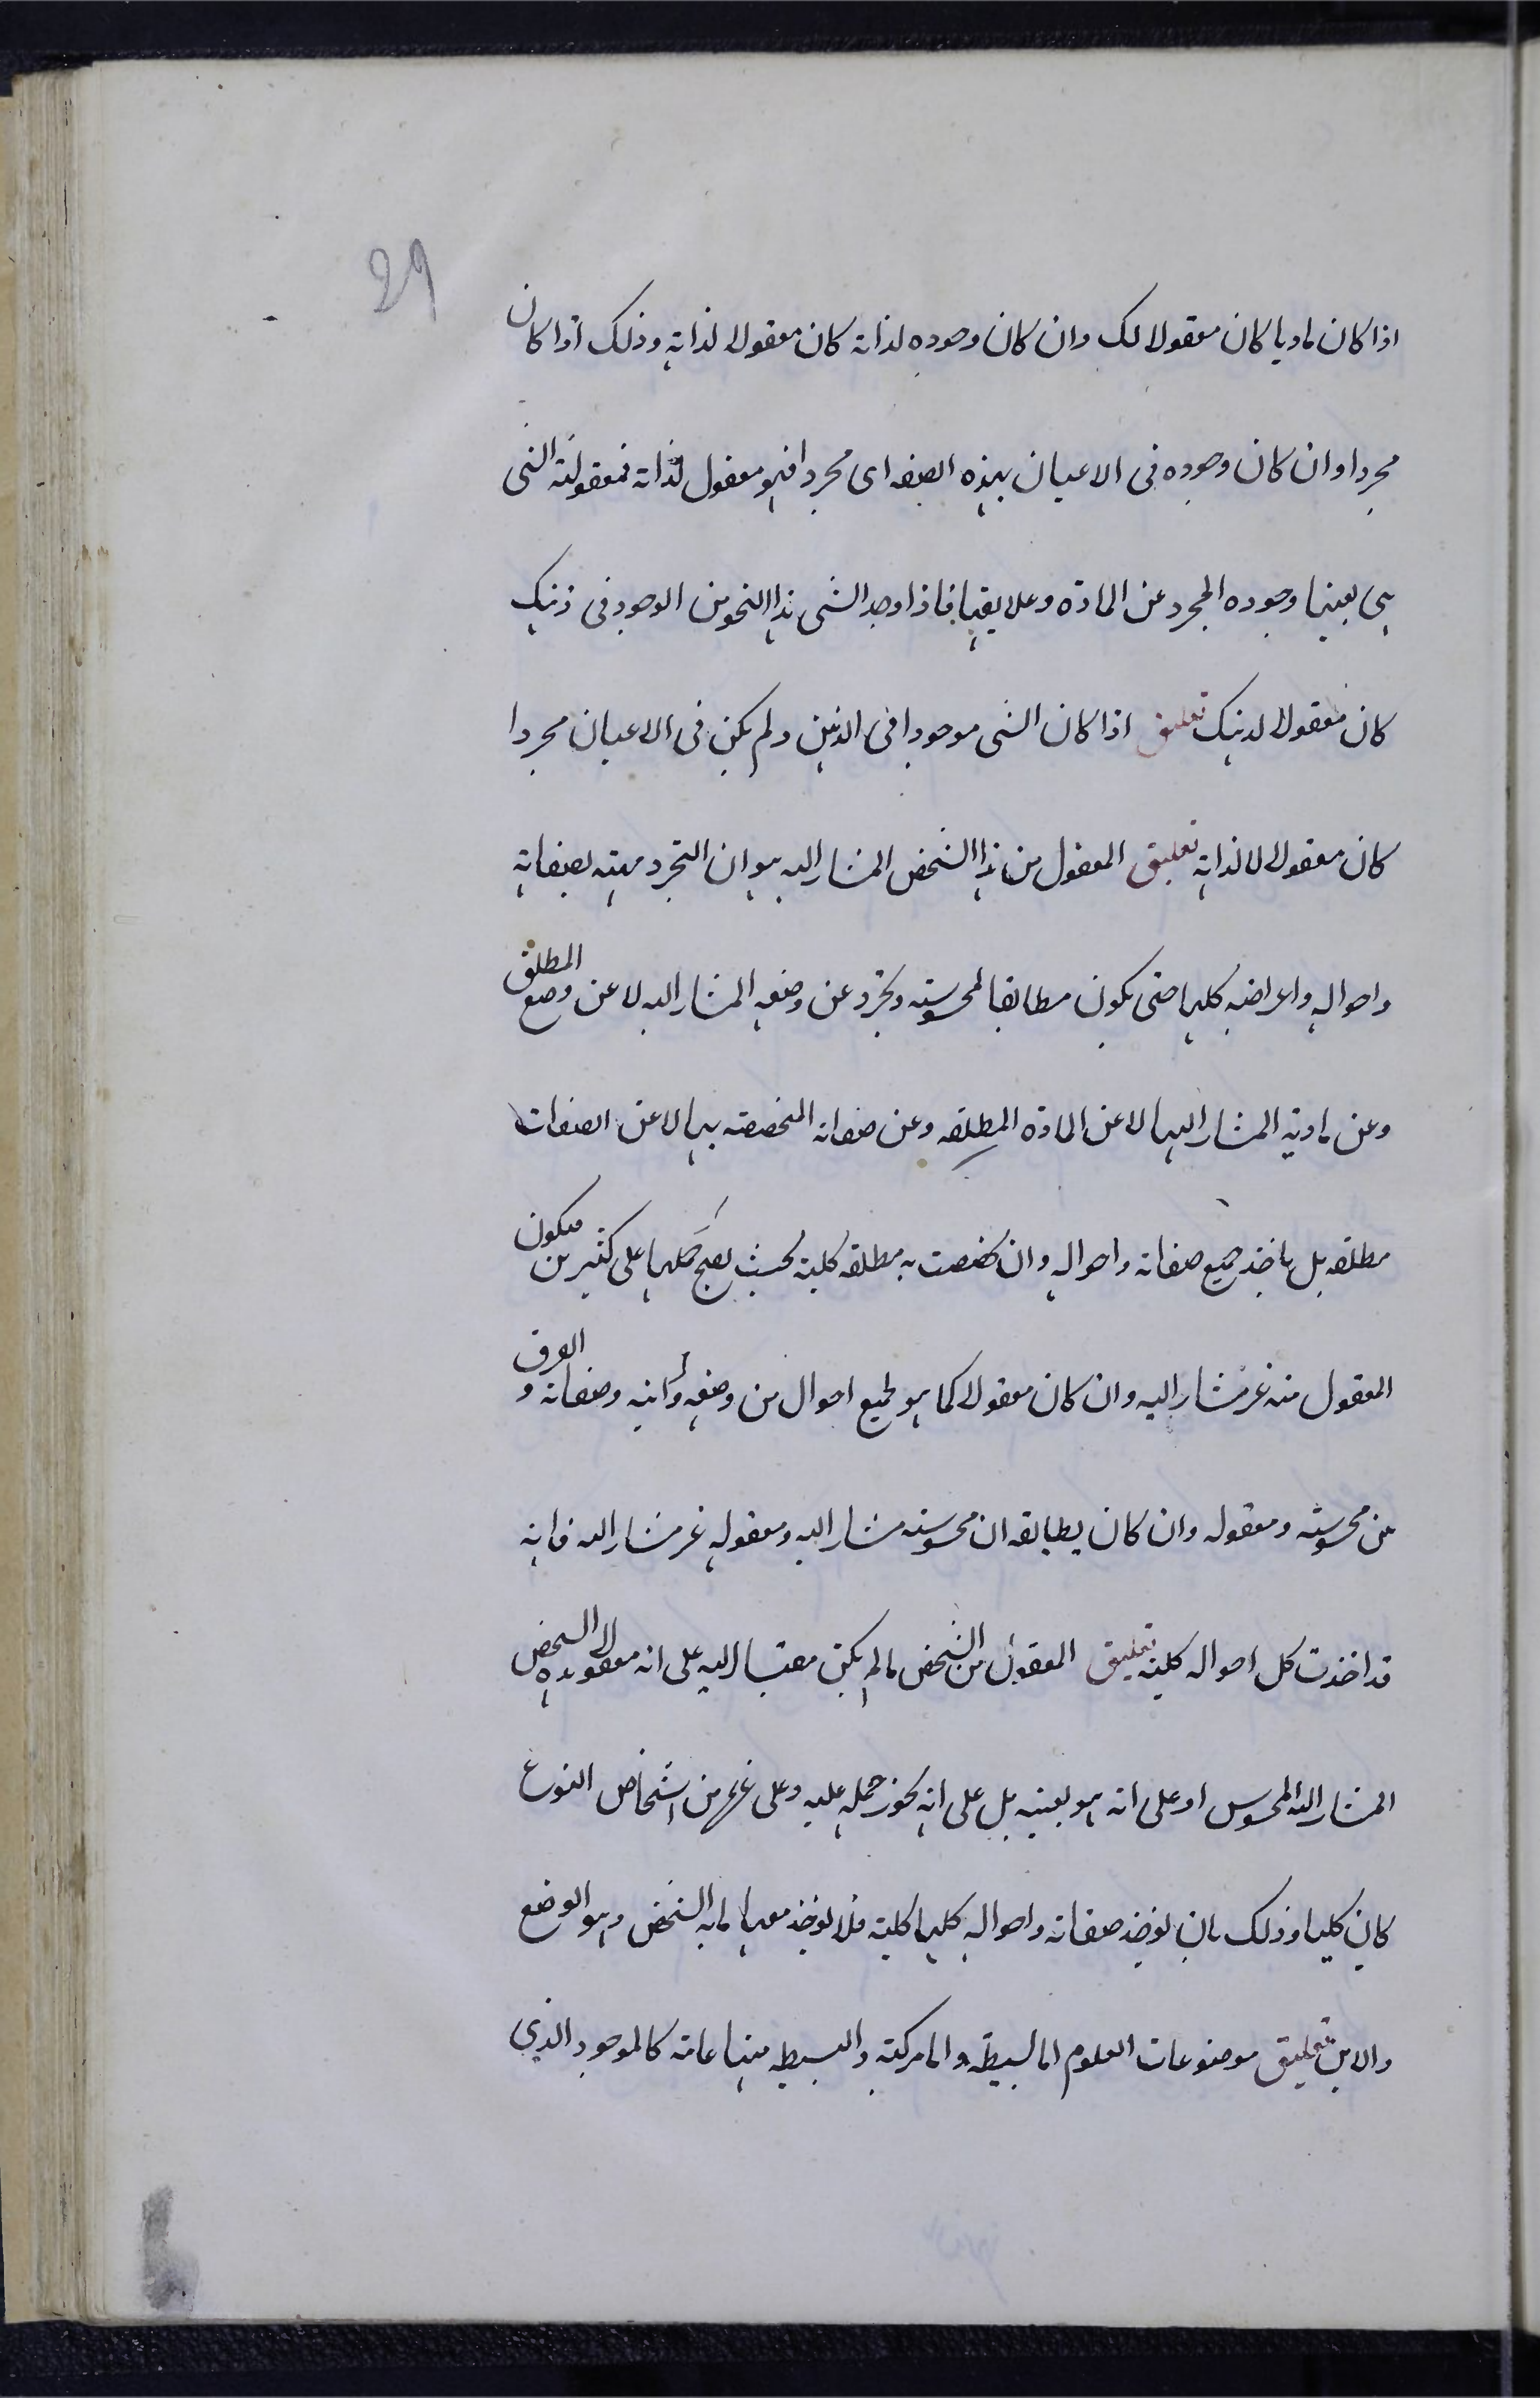 29
اذا كان ماديا كان معقولا لك وان كان وجوده لذاته كان معقولا لذاته وذلك اذا كان
مجردا وان كان وجوده فى الاعيان بهذه الصفه اى مجردا فهو معقول لذاته فمعقوليته الشى
هى بعينها وجوده المجرد عن المادة وعلايقها فاذا وجد الشى هذا النحو من الوجود فى ذهنك
كان معقولا لذهنك تعليق اذا كان الشى موجودا فى الذهن ولم يكن فى الاعيان مجردا
كان معقولا لا لذاته تعليق المعقول من هذا الشخص المشار اليه هو ان التجرد مهيته بصفاته
واحواله واعراضه كلها حتى يكون مطابقا لمحسوسه وتجرد عن وضعه المشار اليه لا عن وضع المطلق
وعن مادته المشار اليها لا عن المادة المطلقه وعن صفاته المخصصه بها لا عن الصفات
مطلقه بل ياخذ جميع صفاته واحواله وان تخصصت به مطلقه كلية بحيث يصح حملها على كثيرين فيكون
المعقول منه غير مشار اليه وان كان معقولا كما هو لجميع احوال من وضعه واينه وصفاته و الفرق
بين محسوسه ومعقوله وان كان يطابقه ان محسوسه مشار اليه ومعقوله غير مشار اليه فانه
قد اخذت كل احواله كلية تعليق المعقول من الشخص ما لم يكن مقتسا اليه على انه معقول لهذا الشخص
المشار اليه المحسوس او على انه هو بعينه بل على انه يجوز حمله عليه وعلى غيره من اشخاص النوع
كان كليا وذلك بان يوخذ صفاته واحواله كلها كلية فلا يوخذ معها ما به الشخص وهو الوضع
والاين تعليق موضوعات العلوم اما بسيطة واما مركبة والبسيطه منها عامة كالموجود الذى